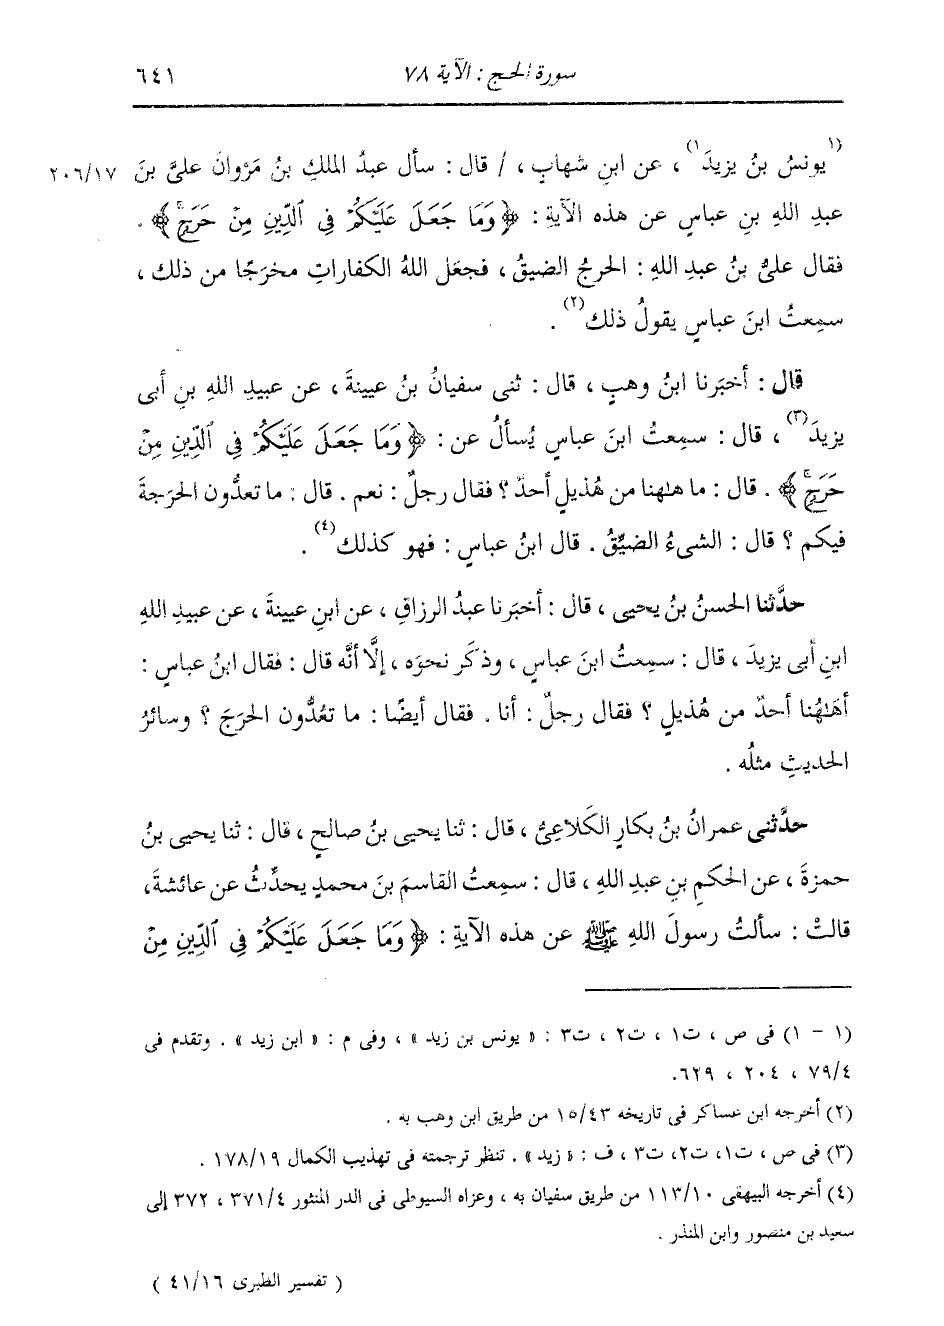 سورة الحج : الآية ٧٨ ٦٤١
(١ يونسُ بنُ يزيدَ ١) ، عن ابنِ شهابٍ ، / قال : سأل عبدُ الملكِ بنُ مَرْوانَ علىَّ بنَ ٢٠٦/١٧
عبدِ اللهِ بنِ عباسٍ عن هذه الآيةِ : ﴿ وَمَا جَعَلَ عَلَيْكُمْ فِى ٱلدِّينِ مِنْ حَرَجٍ ﴾ .
فقال علىُّ بنُ عبدِ اللهِ : الحرجُ الضيقُ ، فجعَل اللهُ الكفاراتِ مخرَجًا من ذلك ،
سمِعتُ ابنَ عباسٍ يقولُ ذلك (٢) .
قال : أخبَرنا ابنُ وهبٍ ، قال : ثنى سفيانُ بنُ عيينةَ ، عن عبيدِ اللهِ بنِ أبى
يزيدَ (٣) ، قال : سمِعتُ ابنَ عباسٍ يُسألُ عن : ﴿ وَمَا جَعَلَ عَلَيْكُمْ فِى ٱلدِّينِ مِنْ
حَرَجٍ ﴾ . قال : ما هٰهنا من هُذيلٍ أحدٌ ؟ فقال رجلٌ : نعم . قال : ما تعدُّون الحرَجةَ
فيكم ؟ قال : الشىءُ الضيِّقُ . قال ابنُ عباسٍ : فهو كذلك (٤) .
حدَّثنا الحسنُ بنُ يحيى ، قال : أخبَرنا عبدُ الرزاقِ ، عن ابنِ عيينةَ ، عن عبيدِ اللهِ
ابنِ أبى يزيدَ ، قال : سمِعتُ ابنَ عباسٍ ، وذكَر نحوَه ، إلَّا أنَّه قال : فقال ابنُ عباسٍ :
أهٰهُنا أحدٌ من هُذيلٍ ؟ فقال رجلٌ : أنا . فقال أيضًا : ما تعُدُّون الحرَجَ ؟ وسائرُ
الحديثِ مثلُه .
حدَّثنى عمرانُ بنُ بكارٍ الكَلاعِىُّ ، قال : ثنا يحيى بنُ صالحٍ ، قال : ثنا يحيى بنُ
حمزةَ ، عن الحكمِ بنِ عبدِ اللهِ ، قال : سمِعتُ القاسمَ بنَ محمدٍ يحدِّثُ عن عائشةَ،
قالتْ : سألتُ رسولَ اللهِ ﷺ عن هذه الآيةِ : ﴿ وَمَا جَعَلَ عَلَيْكُمْ فِى ٱلدِّينِ مِنْ
(١ - ١) فى ص ، ت١ ، ت٢ ، ت٣ : « يونس بن زيد » ، وفى م : « ابن زيد » . وتقدم فى
٧٩/٤ ، ٢٠٤ ، ٦٢٩.
(٢) أخرجه ابن عساكر فى تاريخه ١٥/٤٣ من طريق ابن وهب به .
(٣) فى ص ، ت١، ت٢، ت٣ ، ف : « زيد » . تنظر ترجمته فى تهذيب الكمال ١٧٨/١٩ .
(٤) أخرجه البيهقى ١١٣/١٠ من طريق سفيان به ، وعزاه السيوطى فى الدر المنثور ٣٧١/٤ ، ٣٧٢ إلى
سعيد بن منصور وابن المنذر .
( تفسير الطبرى ٤١/١٦ )